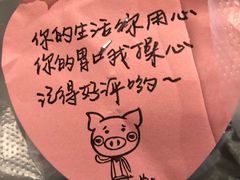 你的生活你用心
你的胃由我操心
记得好评哟～